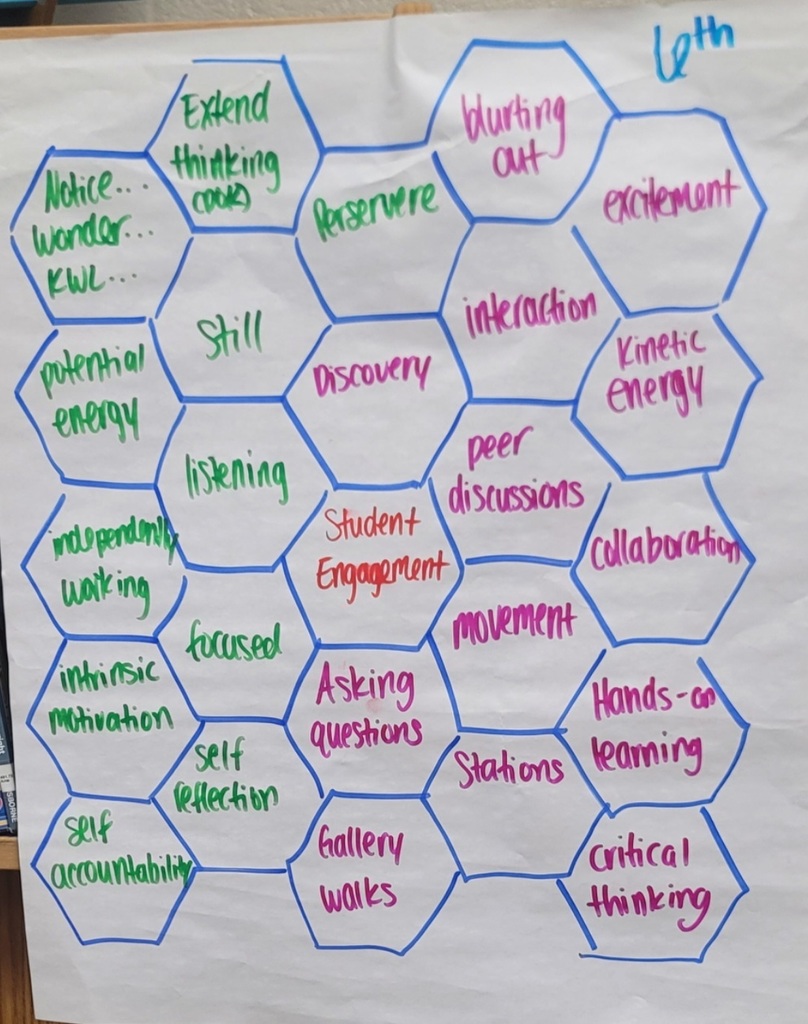 6th
Extend
thinking
(DOK)
blurting
out
Notice...
wonder...
KWL...
Perservere
excitement
Still
interaction
potential
energy
Discovery
Kinetic
energy
listening
peer
discussions
independently
working
Student
Engagement
collaboration
focused
movement
intrinsic
motivation
Asking
questions
Hands-on
learning
self
reflection
Stations
self
accountability
Gallery
walks
critical
thinking